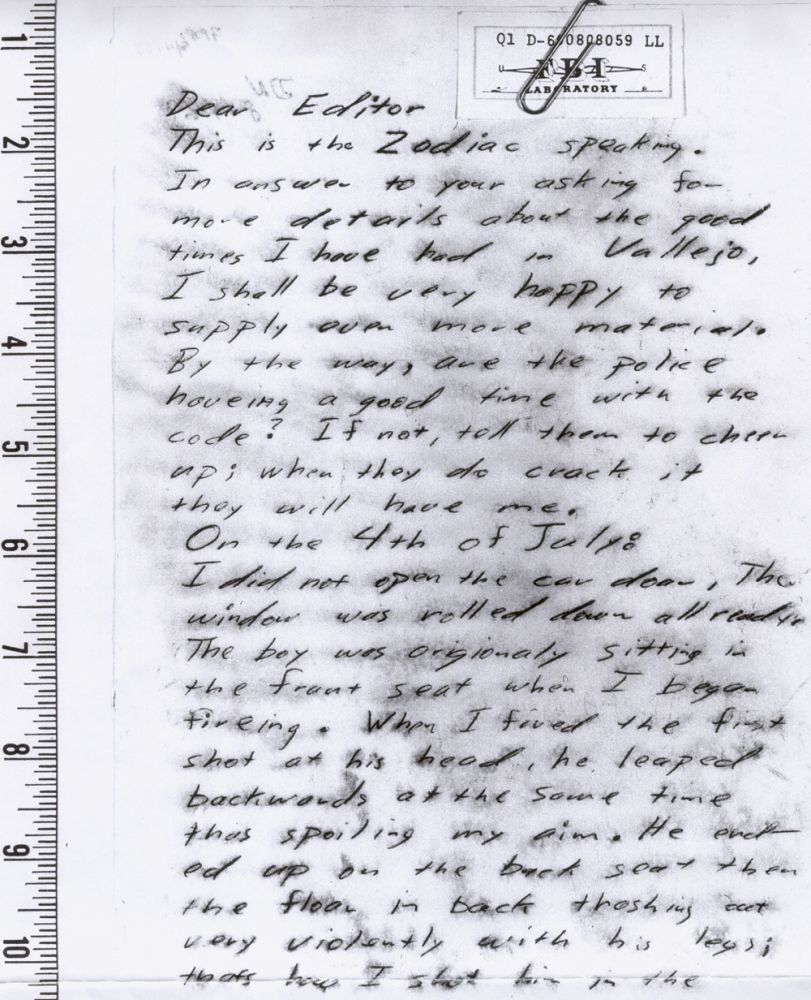 Q1 D-600808059 LL
FBI
LABORATORY
Dear Editor
This is the Zodiac speaking.
In answer to your asking for
more details about the good
times I have had in Vallejo,
I shall be very happy to
supply even more material.
By the way, are the police
haveing a good time with the
code? If not, tell them to cheer
up; when they do crack it
they will have me.
On the 4th of July:
I did not open the car door, The
window was rolled down all ready
The boy was origionaly sitting in
the frunt seat when I began
fireing. When I fired the first
shot at his head, he leaped
backwards at the same time
thus spoiling my aim. He end-
ed up on the back seat then
the floor in back thashing out
very violently with his legs;
thats how I shot him in the
1
2
3
4
5
6
7
8
9
10